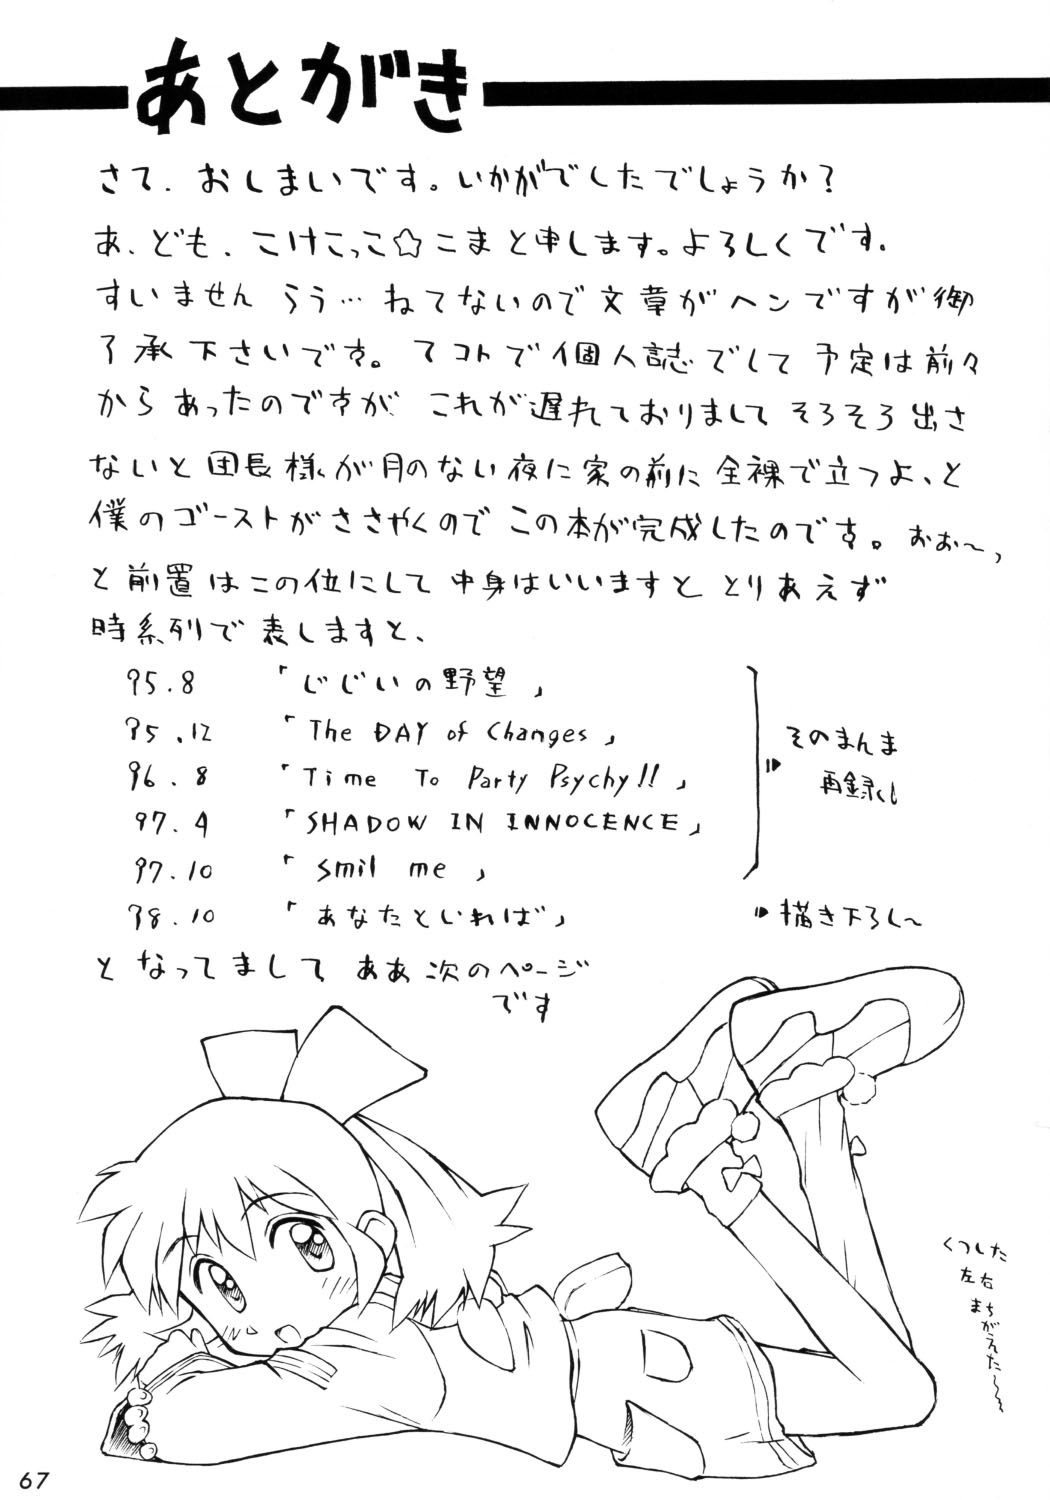 あとがき
さて、おしまいです。いかがでしたでしょうか？
あ、ども、こけこっこ☆こまと申します。よろしくです。
すいません うう…ねてないので文章がヘンですが御
了承下さいです。てコトで個人誌でして予定は前々
からあったのですが、これが遅れておりましてそろそろ出さ
ないと団長様が月のない夜に家の前に全裸で立つよ、と
僕のゴーストがささやくのでこの本が完成したのです。おお〜っ
と前置はこの位にして中身はいいますと とりあえず
時系列で表しますと、
95.8 「じじいの野望」
95.12 「The DAY of Changes」
96.8 「Time To Party Psychy!!」
97.4 「SHADOW IN INNOCENCE」
97.10 「Smil me」
そのまんま
再録くし
98.10 「あなたといれば」 描き下ろし〜
となってまして ああ次のページ
です
くつした
左右
まちがえた〜
67